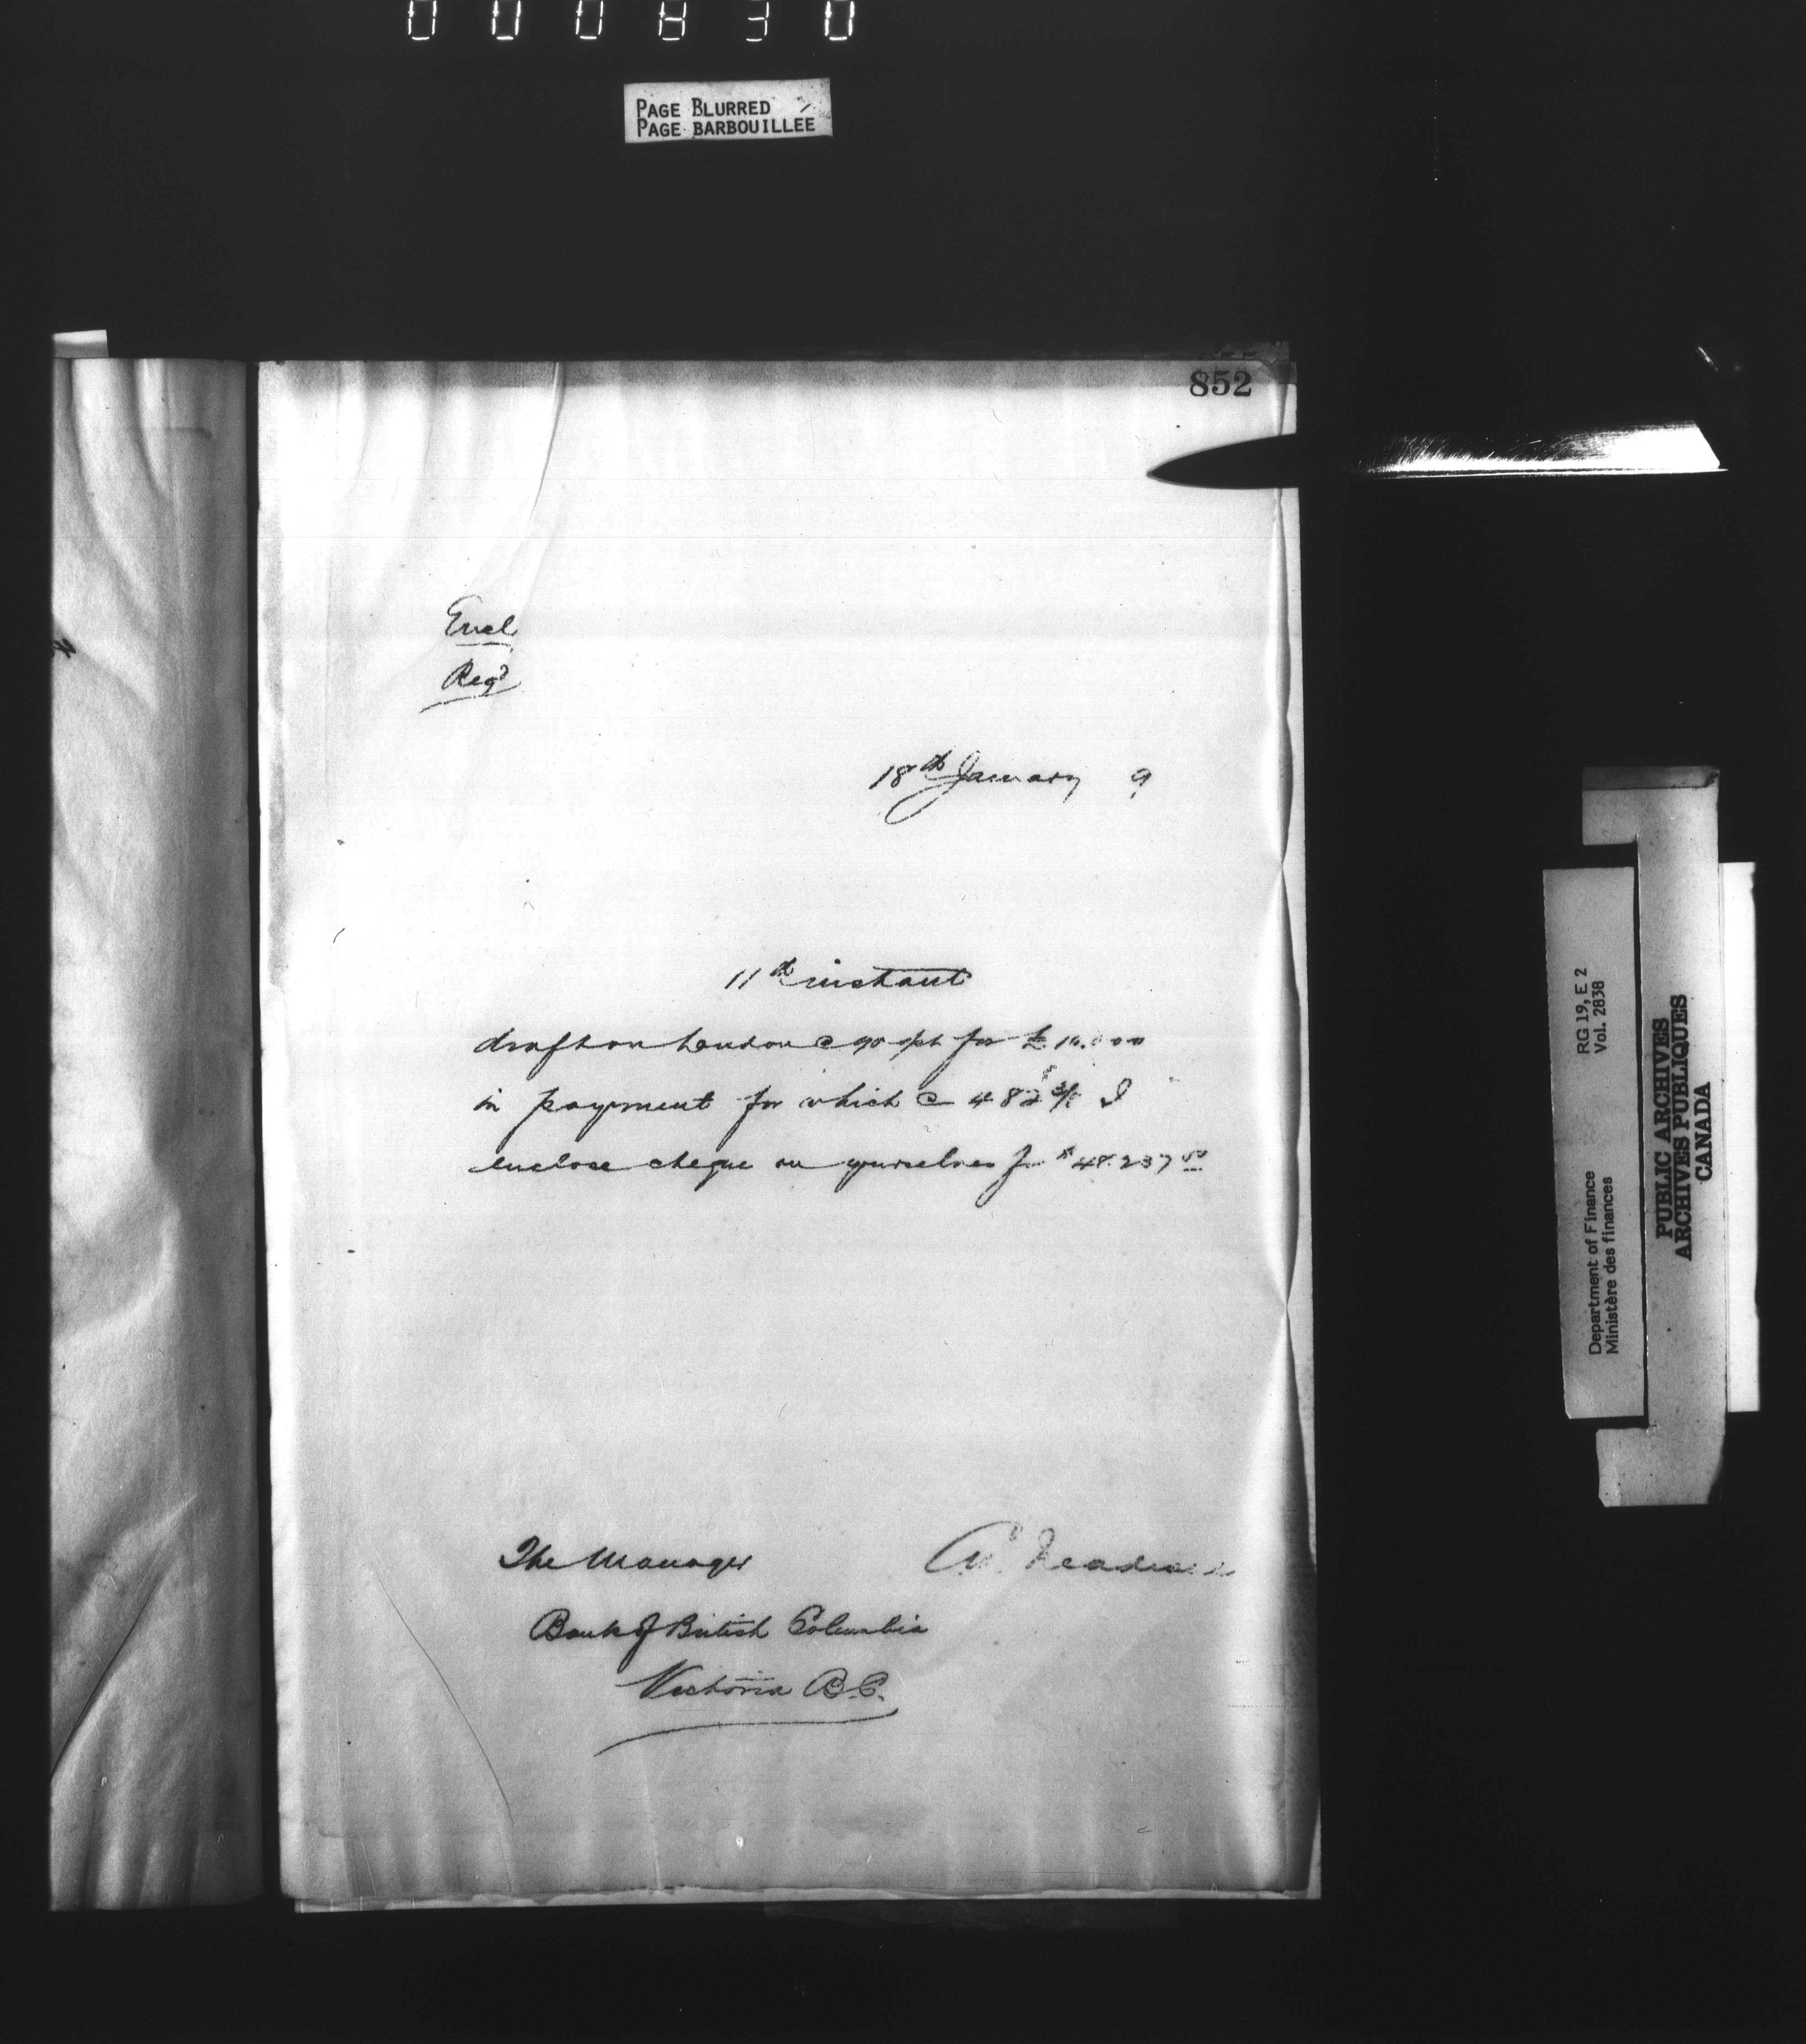 000830
PAGE BLURRED
PAGE BARBOUILLEE
852
Encl
Regd
18th January 9
11th instant
draft on London @ 90 d/st for £10.000
in payment for which @ 482 3/8 I
enclose cheque on yourselves for $48.237 50
The Manager
Bank of British Columbia
Victoria B.C.
RG 19, E 2
Vol. 2838
Department of Finance
Ministère des finances
PUBLIC ARCHIVES
ARCHIVES PUBLIQUES
CANADA